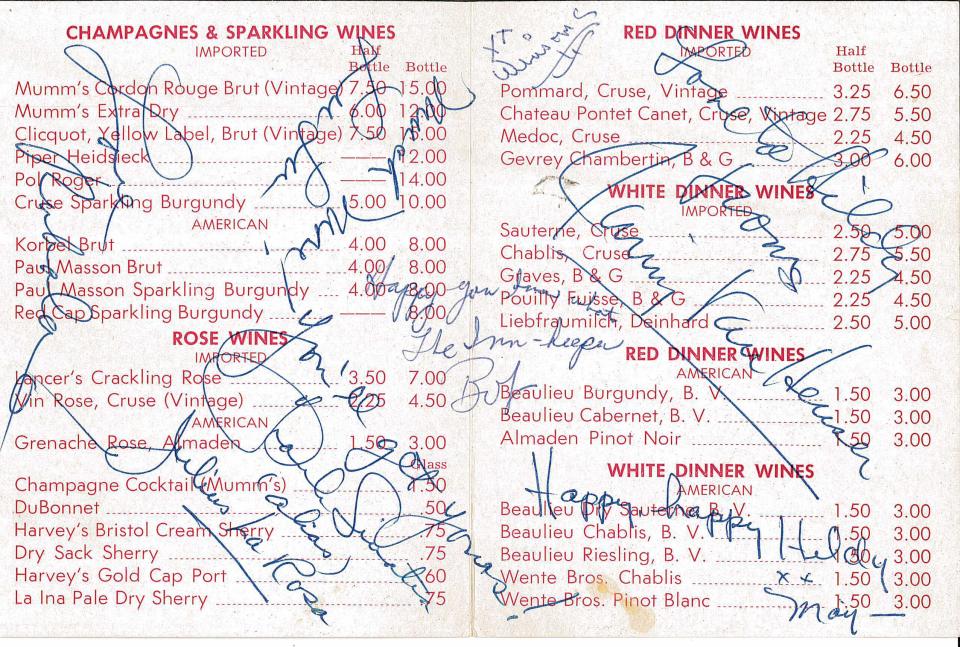 CHAMPAGNES & SPARKLING WINES
IMPORTED
Half
Bottle Bottle
Mumm's Cordon Rouge Brut (Vintage) 7.50 15.00
Mumm's Extra Dry 6.00 12.00
Clicquot, Yellow Label, Brut (Vintage) 7.50 15.00
Piper Heidsieck 12.00
Pol Roger 14.00
Cruse Sparkling Burgundy 5.00 10.00
AMERICAN
Korbel Brut 4.00 8.00
Paul Masson Brut 4.00 8.00
Paul Masson Sparkling Burgundy 4.00 8.00
Red Cap Sparkling Burgundy 8.00
ROSE WINES
IMPORTED
Lancer's Crackling Rose 3.50 7.00
Vin Rose, Cruse (Vintage) 2.25 4.50
AMERICAN
Grenache Rose, Almaden 1.50 3.00
Glass
Champagne Cocktail (Mumm's) 1.50
DuBonnet .50
Harvey's Bristol Cream Sherry .75
Dry Sack Sherry .75
Harvey's Gold Cap Port .60
La Ina Pale Dry Sherry .75
Julius La Rosa
You're
yours
Happy you
The Inn-keeper
RED DINNER WINES
IMPORTED
Half
Bottle Bottle
Pommard, Cruse, Vintage 3.25 6.50
Chateau Pontet Canet, Cruse, Vintage 2.75 5.50
Medoc, Cruse 2.25 4.50
Gevrey Chambertin, B & G 3.00 6.00
WHITE DINNER WINES
IMPORTED
Sauterne, Cruse 2.50 5.00
Chablis, Cruse 2.75 5.50
Graves, B & G 2.25 4.50
Pouilly Fuisse, B & G 2.25 4.50
Liebfraumilch, Deinhard 2.50 5.00
RED DINNER WINES
AMERICAN
Beaulieu Burgundy, B. V. 1.50 3.00
Beaulieu Cabernet, B. V. 1.50 3.00
Almaden Pinot Noir 1.50 3.00
WHITE DINNER WINES
AMERICAN
Beaulieu Dry Sauterne B. V. 1.50 3.00
Beaulieu Chablis, B. V. 1.50 3.00
Beaulieu Riesling, B. V. 1.50 3.00
Wente Bros. Chablis 1.50 3.00
Wente Bros. Pinot Blanc 1.50 3.00
Happy, happy Hildy
x x
May